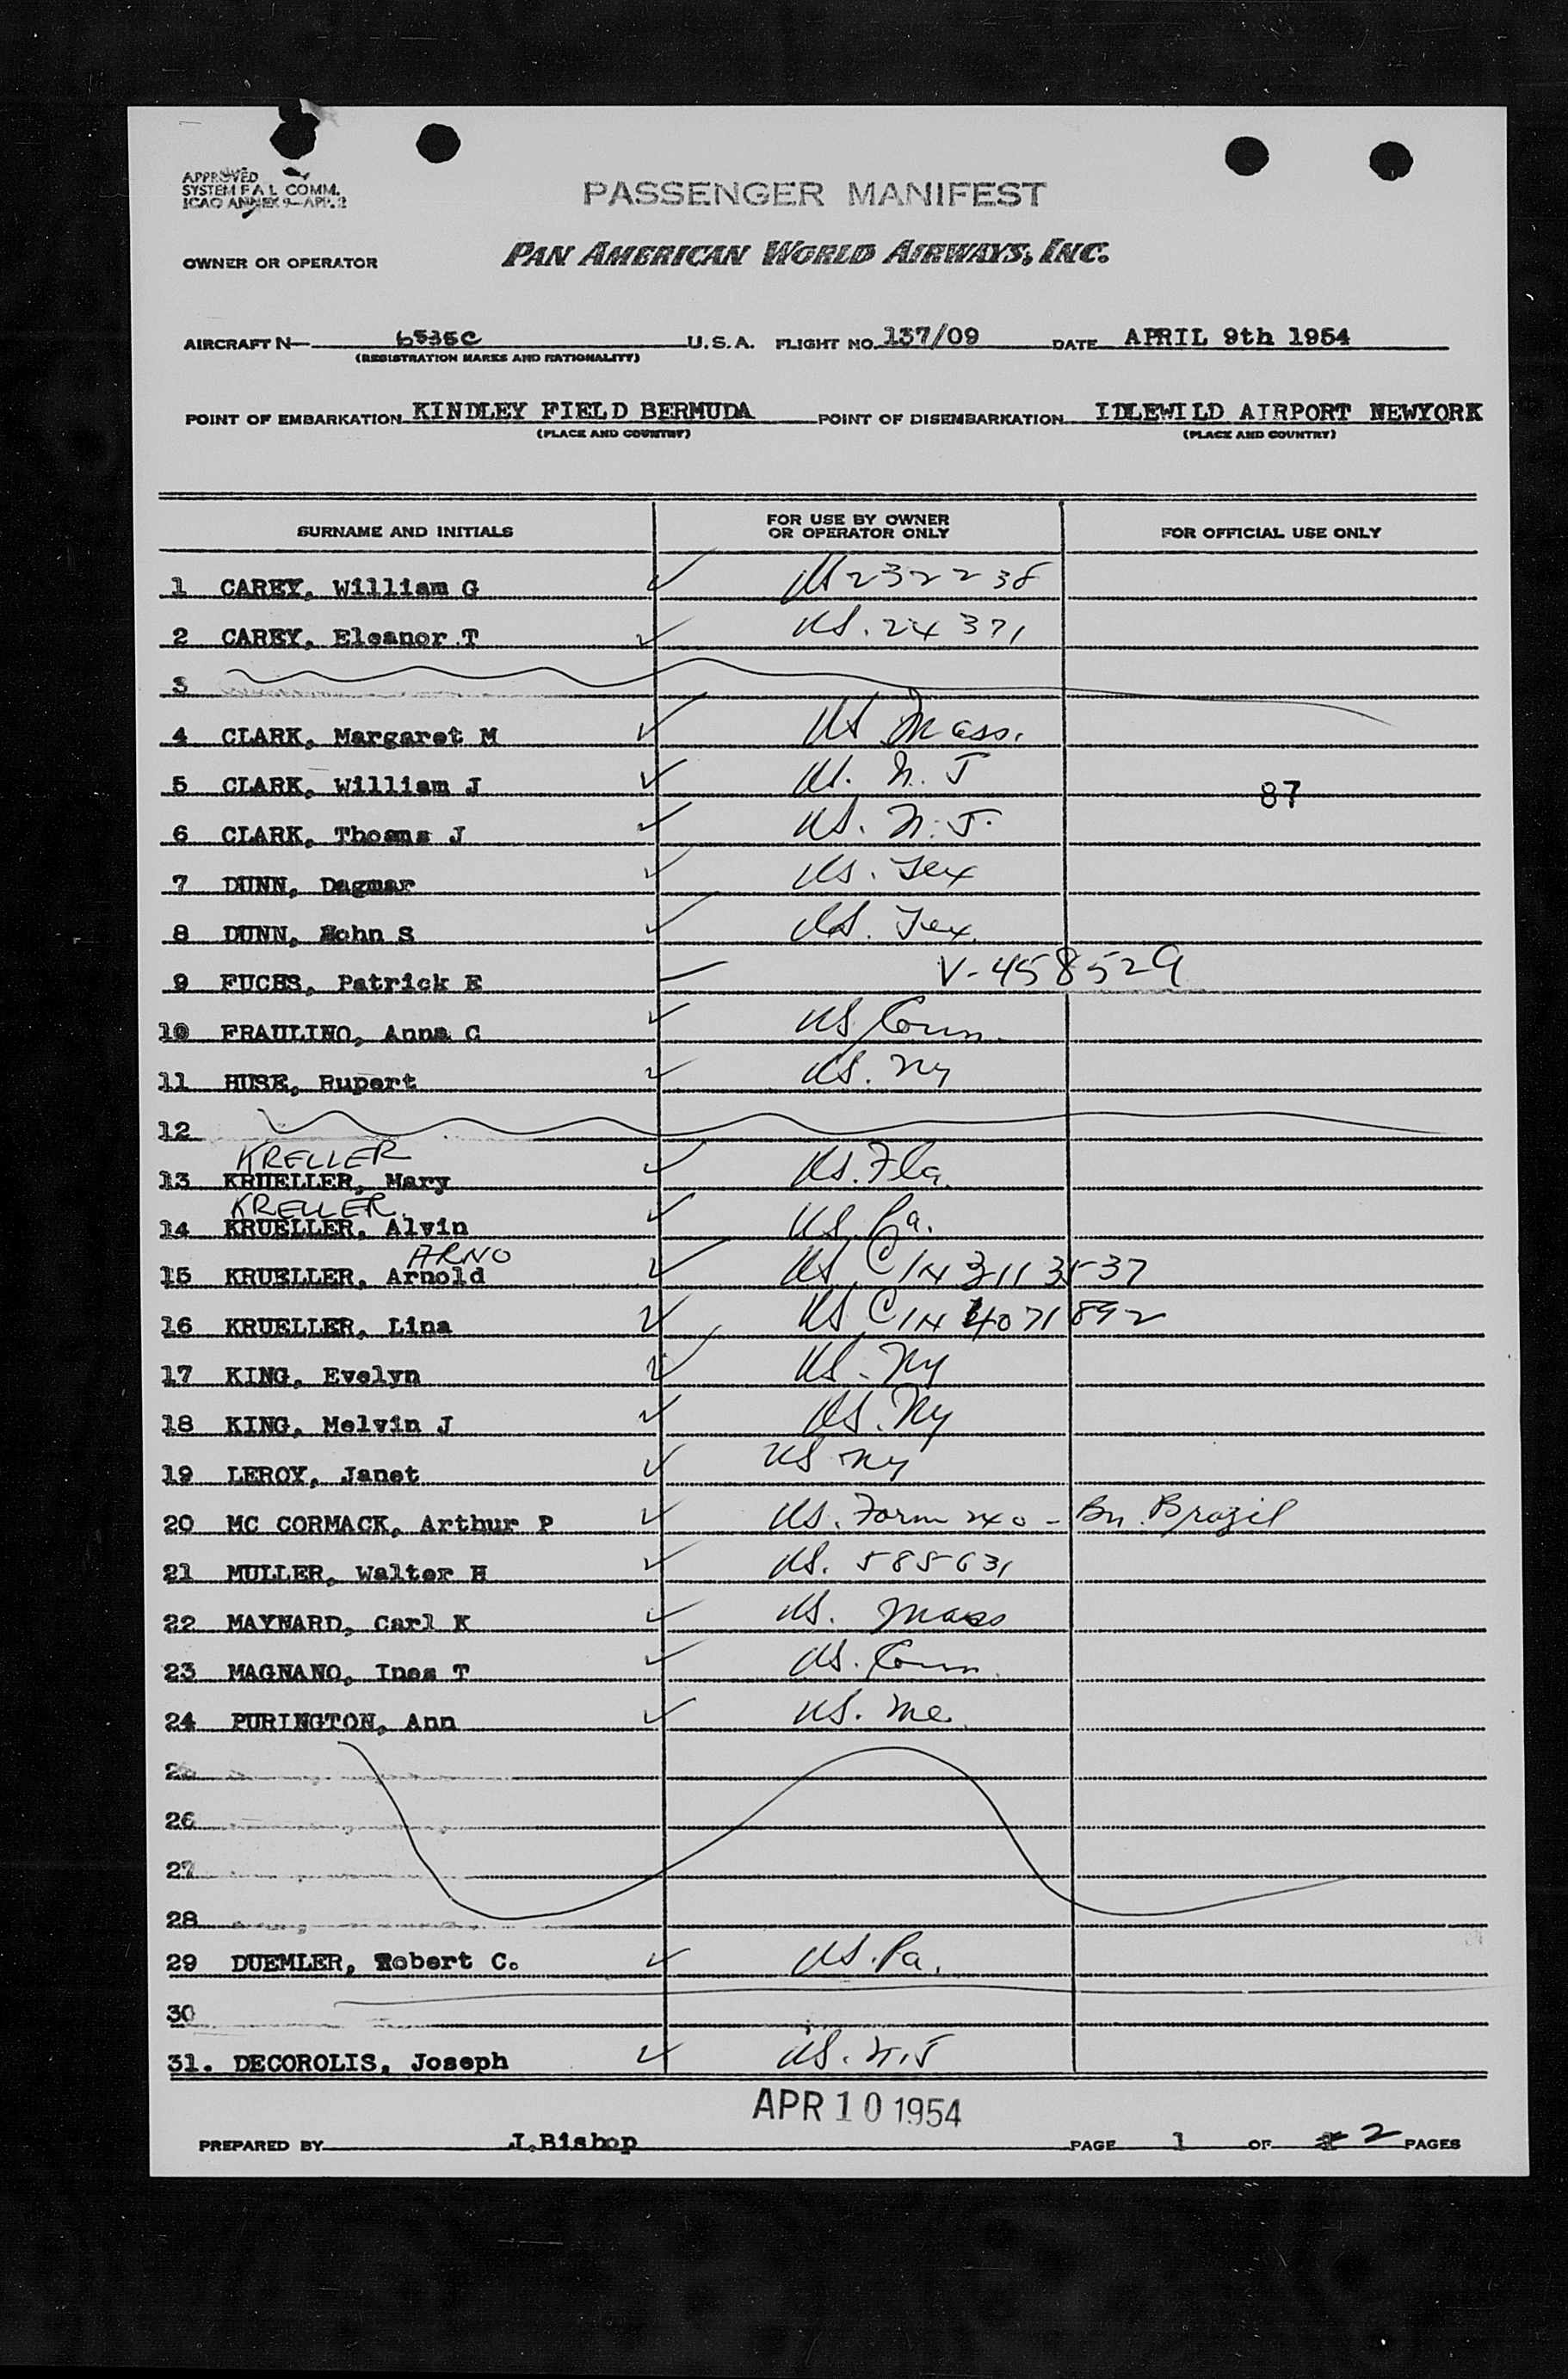 APPROVED
SYSTEM F A L COMM.
ICAO ANNEX 9—APP. 2
PASSENGER MANIFEST
OWNER OR OPERATOR PAN AMERICAN WORLD AIRWAYS, INC.
AIRCRAFT N— 6535C U.S.A. FLIGHT NO. 137/09 DATE APRIL 9th 1954
(REGISTRATION MARKS AND NATIONALITY)
POINT OF EMBARKATION KINDLEY FIELD BERMUDA POINT OF DISEMBARKATION IDLEWILD AIRPORT NEWYORK
(PLACE AND COUNTRY) (PLACE AND COUNTRY)
SURNAME AND INITIALS FOR USE BY OWNER OR OPERATOR ONLY FOR OFFICIAL USE ONLY
1 CAREY, William G ✓ US 232238
2 CAREY, Eleanor T ✓ US. 24371
3
4 CLARK, Margaret M ✓ US Mass.
5 CLARK, William J ✓ US. N. J 87
6 CLARK, Thoams J ✓ US. N. J.
7 DUNN, Dagmar ✓ US. Tex
8 DUNN, John S ✓ US. Tex.
9 FUCHS, Patrick E V-458529
10 FRAULINO, Anna C ✓ US. Conn.
11 HUSE, Rupert ✓ US. Ny
12
KRELLER
13 KRUELLER, Mary ✓ US. Fla.
KRELLER.
14 KRUELLER, Alvin ✓ US. Pa.
ARNO
15 KRUELLER, Arnold ✓ US. C/N 3113537
16 KRUELLER, Lina ✓ US C/N 4071892
17 KING, Evelyn ✓ US. Ny
18 KING, Melvin J ✓ US. Ny
19 LEROY, Janet ✓ US Ny
20 MC CORMACK, Arthur P ✓ US. Form 240 - Bn. Brazil
21 MULLER, Walter H ✓ US. 585631
22 MAYNARD, Carl K ✓ US. Mass
23 MAGNANO, Ines T ✓ US. Conn.
24 PURINGTON, Ann ✓ US. Me.
25
26
27
28
29 DUEMLER, Robert C. ✓ US. Pa.
30
31. DECOROLIS, Joseph ✓ US. N.J
APR 10 1954
PREPARED BY J.Bishop PAGE 1 OF 2 PAGES